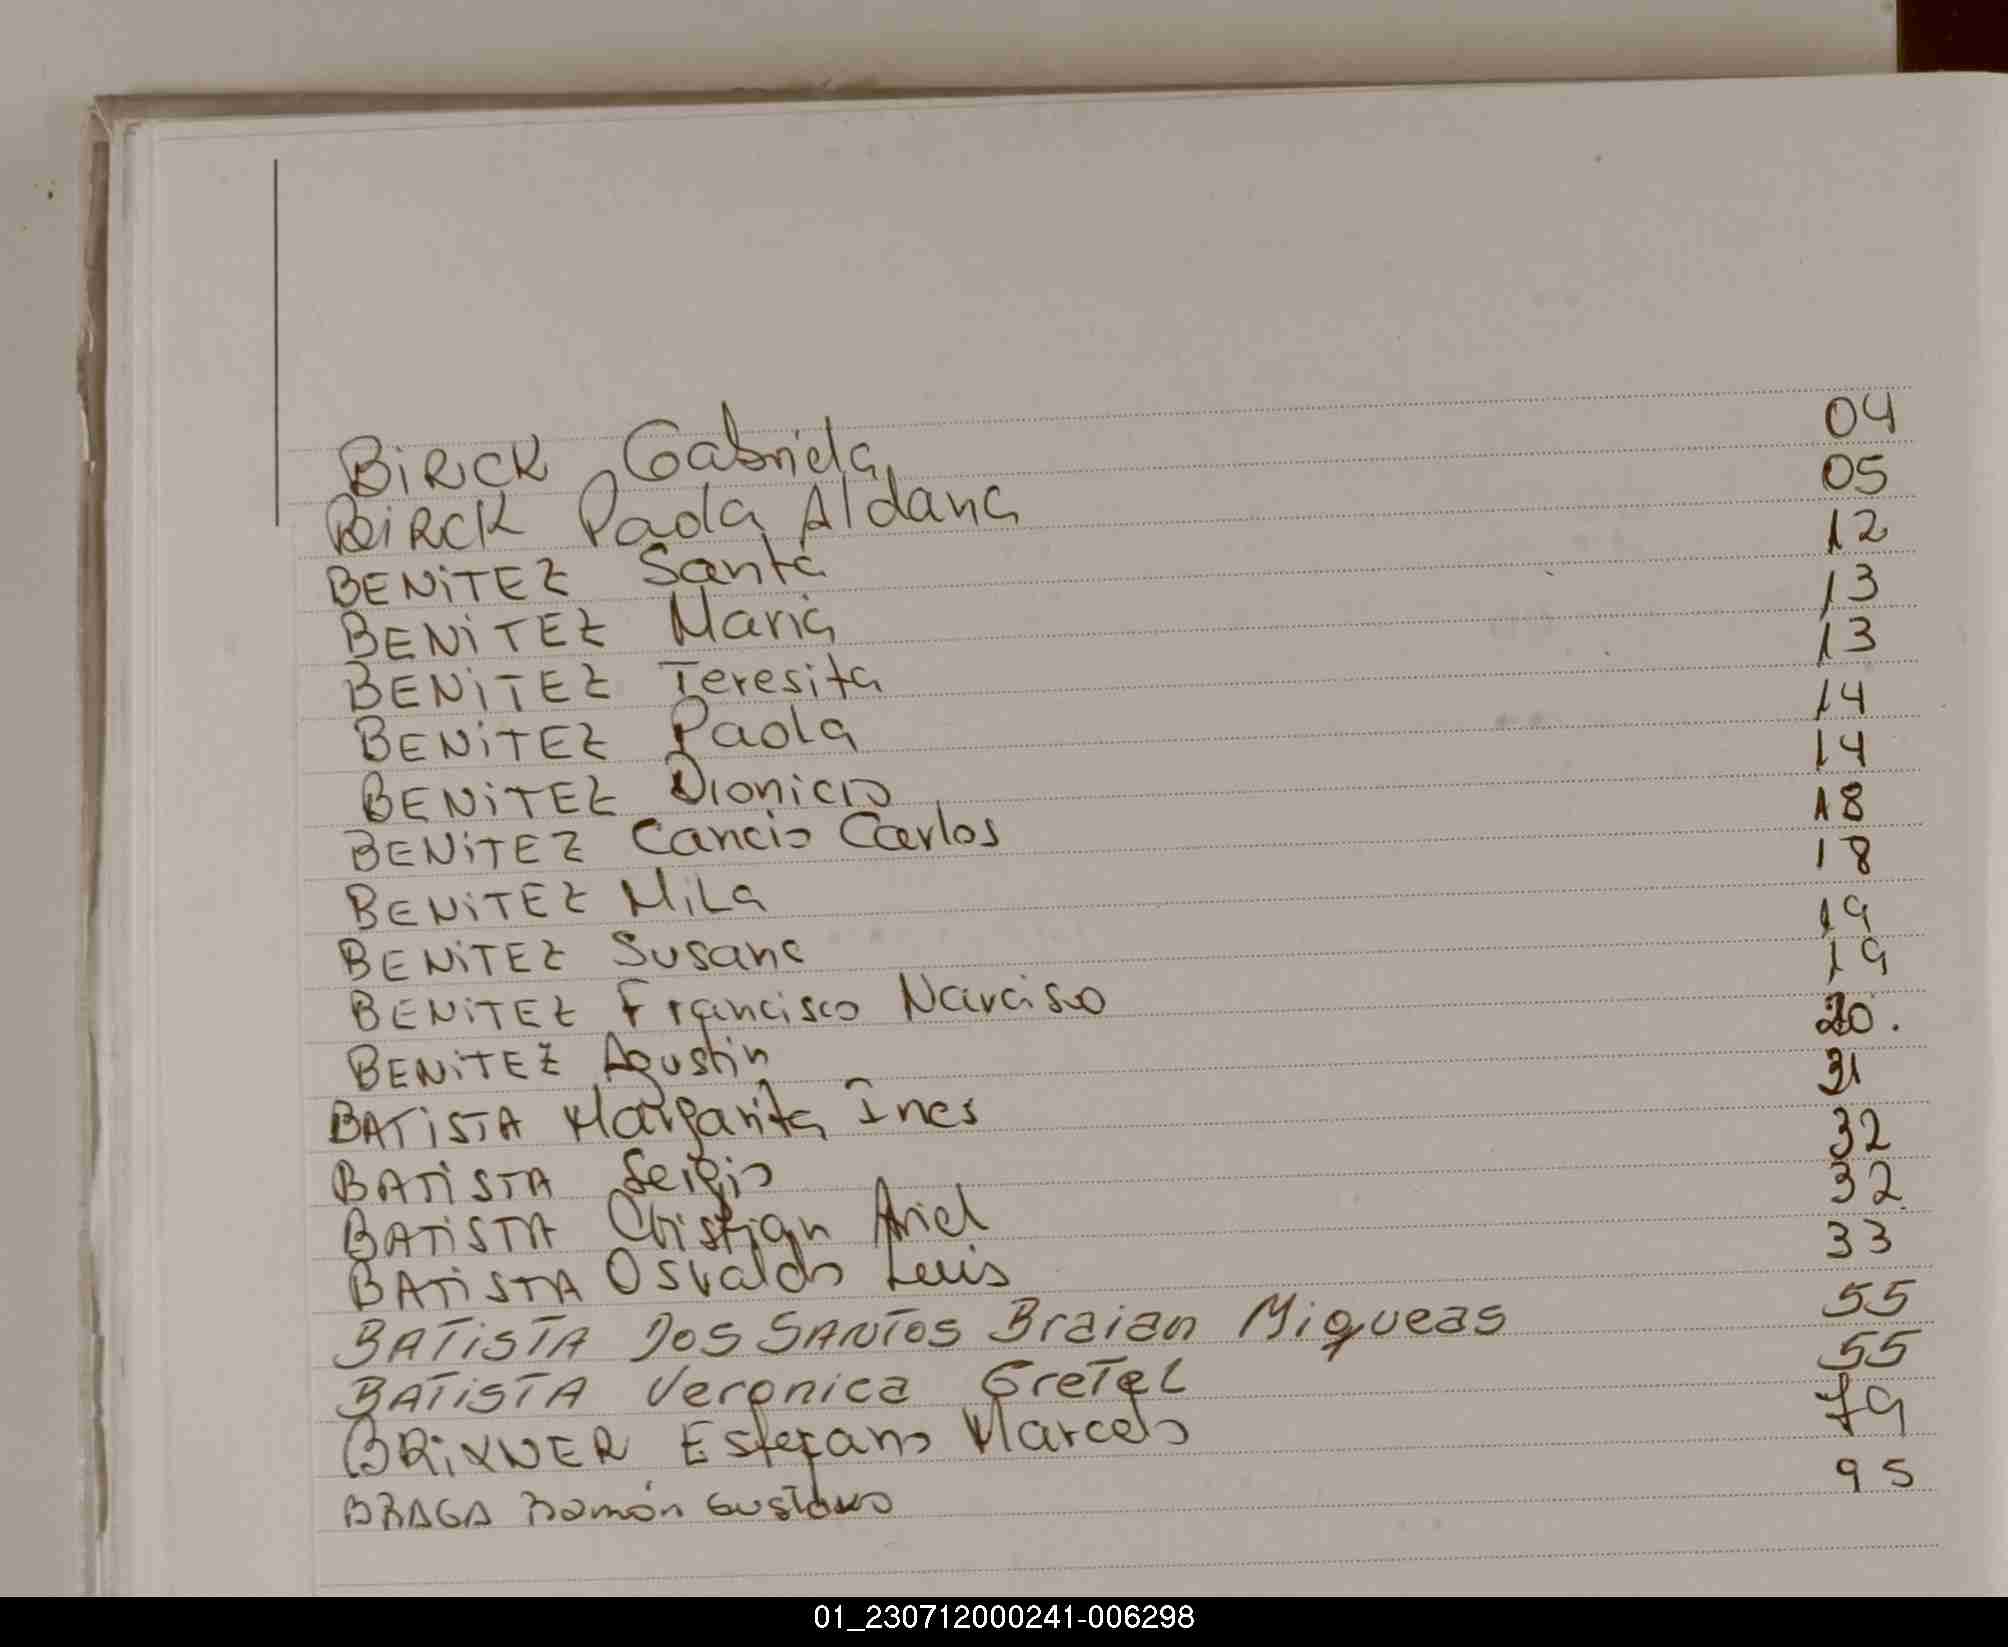 BiRCK Gabriela 04
BiRCK Paola Aldana 05
BENiTEZ Santa 12
BENiTEZ Maria 13
BENiTEZ Teresita 13
BENiTEZ Paola 14
BENiTEZ Dionicio 14
BENiTEZ Cancio Carlos 18
BENiTEZ Mila 18
BENiTEZ Susana 19
BENiTEZ Francisco Narciso 19
BENiTEZ Agustin 20.
BATiSTA Margarita Ines 31
BATiSTA Sergio 32
BATiSTA Christian Ariel 32
BATiSTA Osvaldo Luis 33
BATiSTA DOS SANTOS Braian Miqueas 55
BATiSTA Veronica Gretel 55
BRiXNER Estefano Marcelo 79
BRAGA Ramón Gustavo 95
01_230712000241-006298